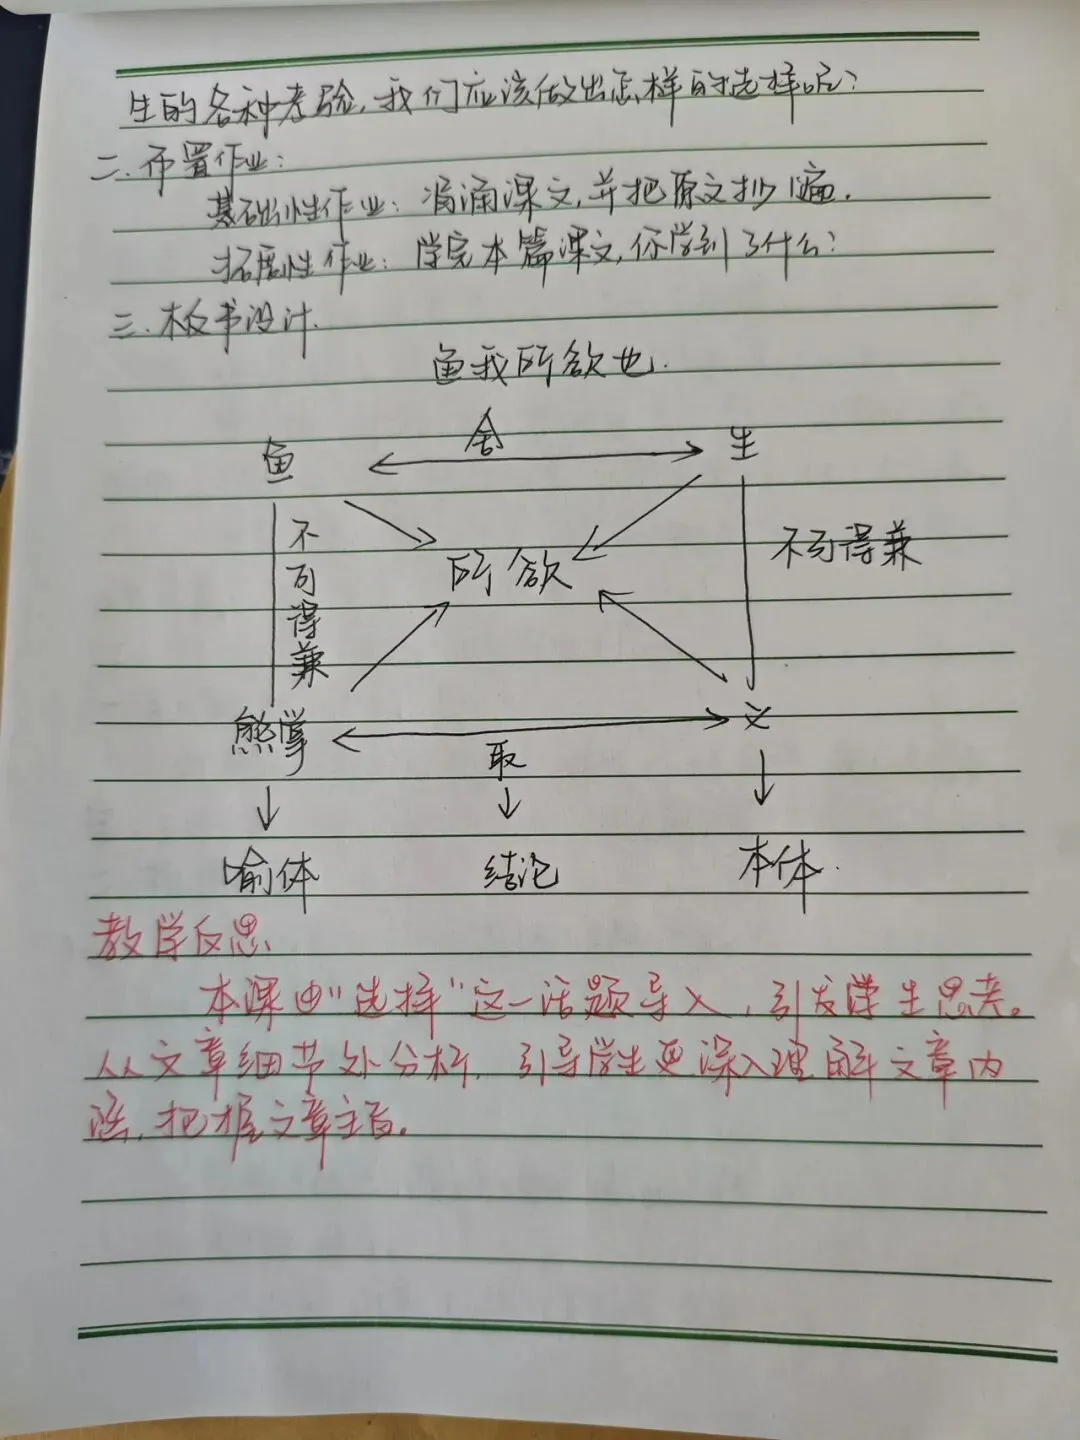 生的各种考验,我们应该做出怎样的选择呢?
二.布置作业:
基础性作业:背诵课文,并把原文抄1遍.
拓展性作业:学完本篇课文,你学到了什么?
三.板书设计.
鱼我所欲也.
鱼 舍 生
不可得兼 所欲 不可得兼
熊掌 取 义
喻体 结论 本体.
教学反思.
本课由"选择"这一话题导入,引发学生思考。
从文章细节处分析,引导学生更深入理解文章内
涵,把握文章主旨。